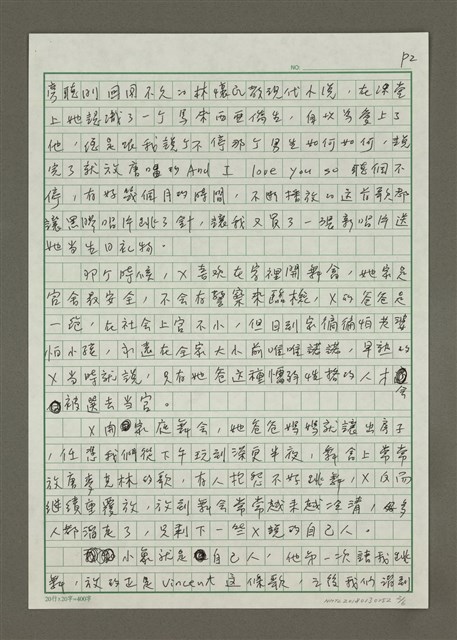 NO.
P2
旁聽剛回國不久的林懷民教現代小說，在課堂
上她認識了一個馬來西亞僑生，自以為愛上了
他，總是跟我說個不停那個男生如何如何，說
完了就放唐墧的 And I love you so 聽個不
停，有好幾個月的時間，不斷播放的這首歌都
讓黑膠唱片跳了針，讓我又買了一張新唱片送
她當生日禮物。
那個時候，X喜歡在家裡開舞會，她家是
官舍最安全，不會有警察來臨檢，X的爸爸是
一　，在社會上官不小，但回到家偏偏怕老婆
怕小孩，永遠在全家大小前唯唯諾諾，早熟的
X當時就說，只有她爸這種懦弱性格的人才會
被選去當官。
X開家庭舞會，她爸爸媽媽就讓出房子
，任憑我們從下午玩到深更半夜，舞會上常常
放唐麥克林的歌，有人抱怨不好跳舞，X反而
繼續重覆放，放到舞會常常越來越冷清，好多
人都溜走了，只剩下一些X說的自己人。
小象就是自己人，他第一次請我跳
舞，放的正是Vincent這條歌，之後我們溜到
20行×20字=400字
2/6